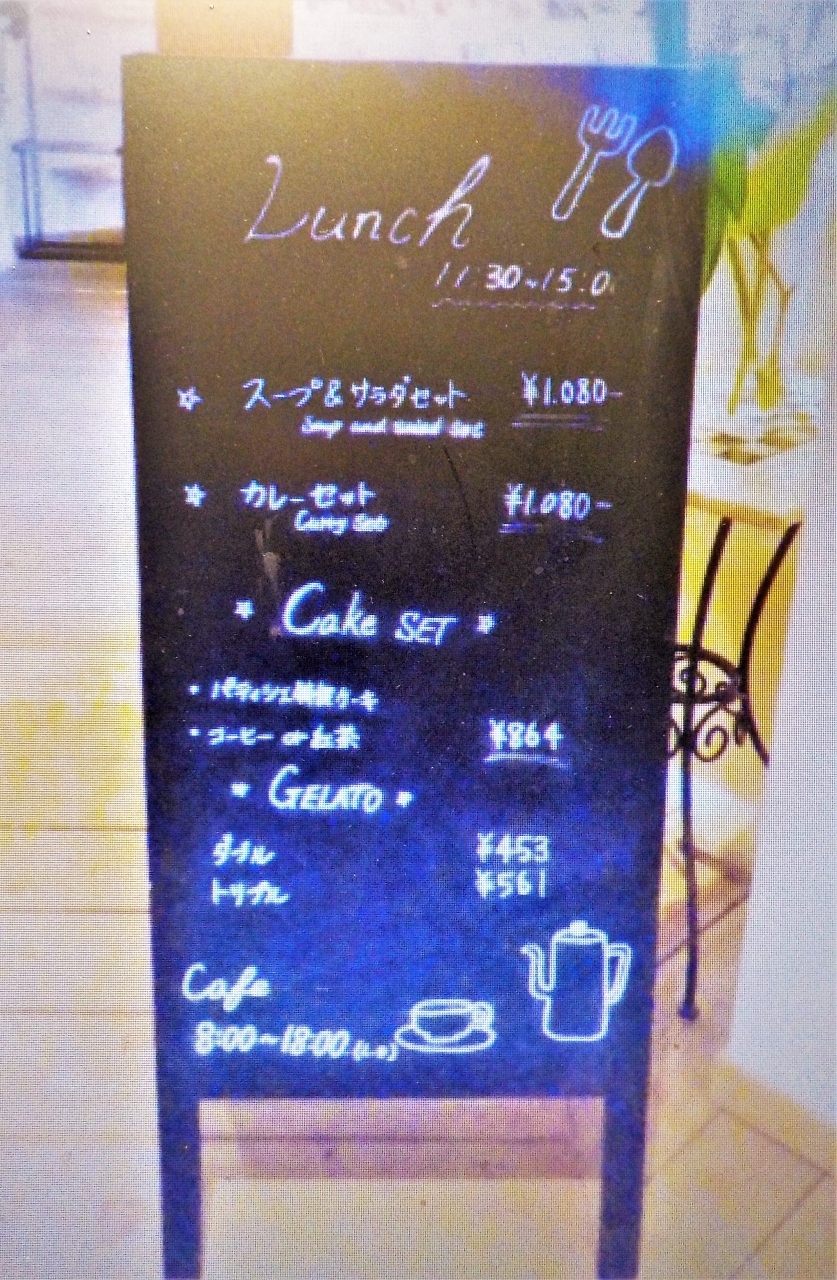 Lunch
11:30~15:0
☆ スープ&サラダセット ¥1.080-
Soup and salad Set
☆ カレーセット ¥1.080-
Curry Set
* Cake SET *
・パティシエ特製ケーキ
・コーヒー or 紅茶 ¥864
* GELATO *
¥453
トリプル ¥561
Cafe
8:00~18:00